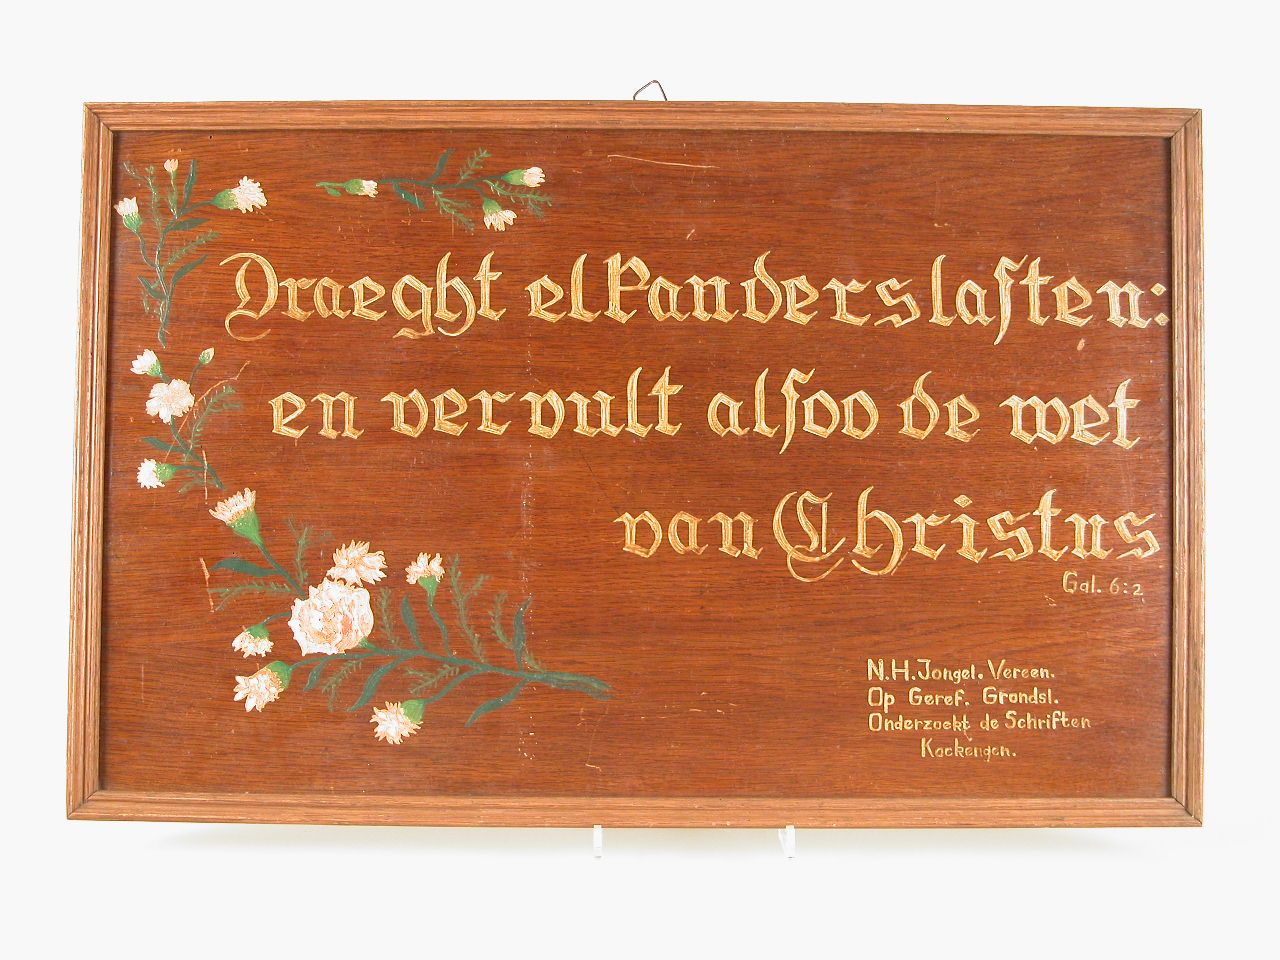 Draeght elkanders lasten:
en vervult alsoo de wet
van Christus
Gal. 6:2
N.H. Jongel. Vereen.
Op Geref. Grondsl.
Onderzoekt de Schriften
Kockengen.